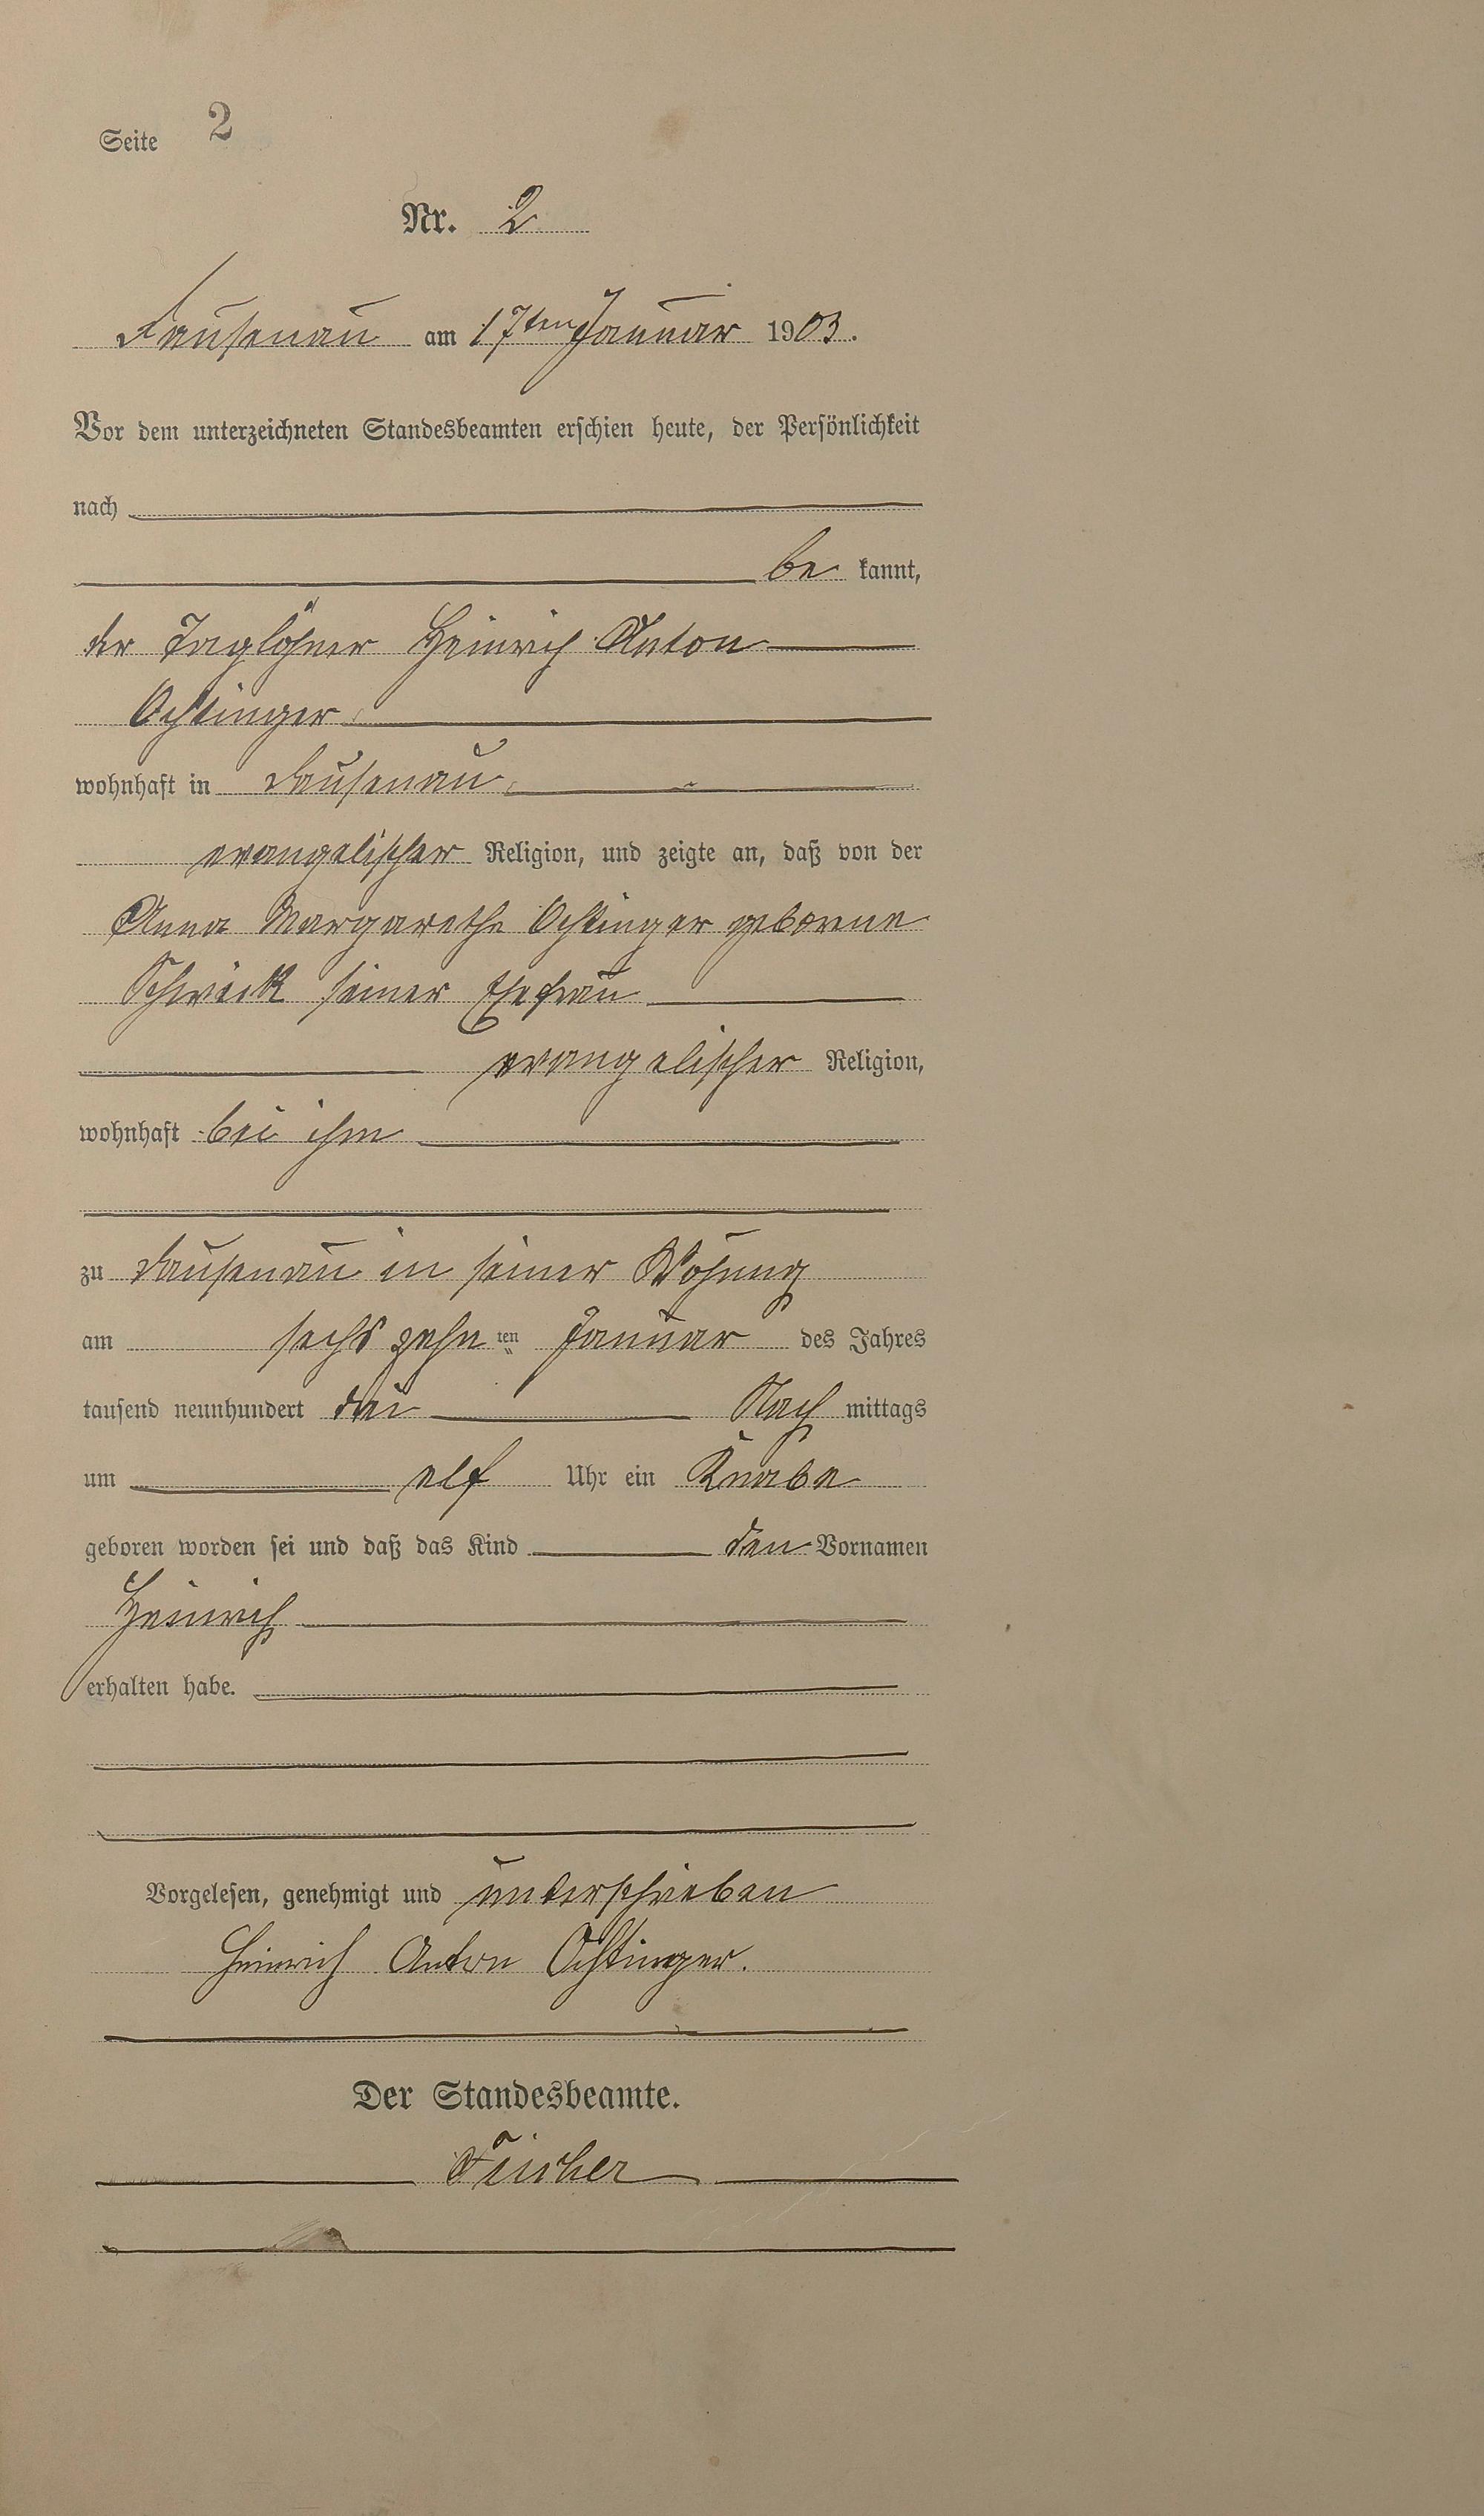 Seite 2
Nr. 2
Dausenau am 17ten Januar 1903.
Vor dem unterzeichneten Standesbeamten erschien heute, der Persönlichkeit
nach
be kannt,
der Taglöhner Heinrich Anton
Ochtinger
wohnhaft in Dausenau
evangelischer Religion, und zeigte an, daß von der
Anna Margarethe Ochtinger geborene
seiner Ehefrau
evangelischer Religion,
wohnhaft bei ihm
zu Dausenau in seiner Wohung
am sechszehn ten Januar des Jahres
tausend neunhundert drei Nach mittags
um elf Uhr ein Knabe
geboren worden sei und daß das Kind den Vornamen
Heinrich
erhalten habe.
Vorgelesen, genehmigt und unterschrieben
Heinrich Anton Ochtinger.
Der Standesbeamte.